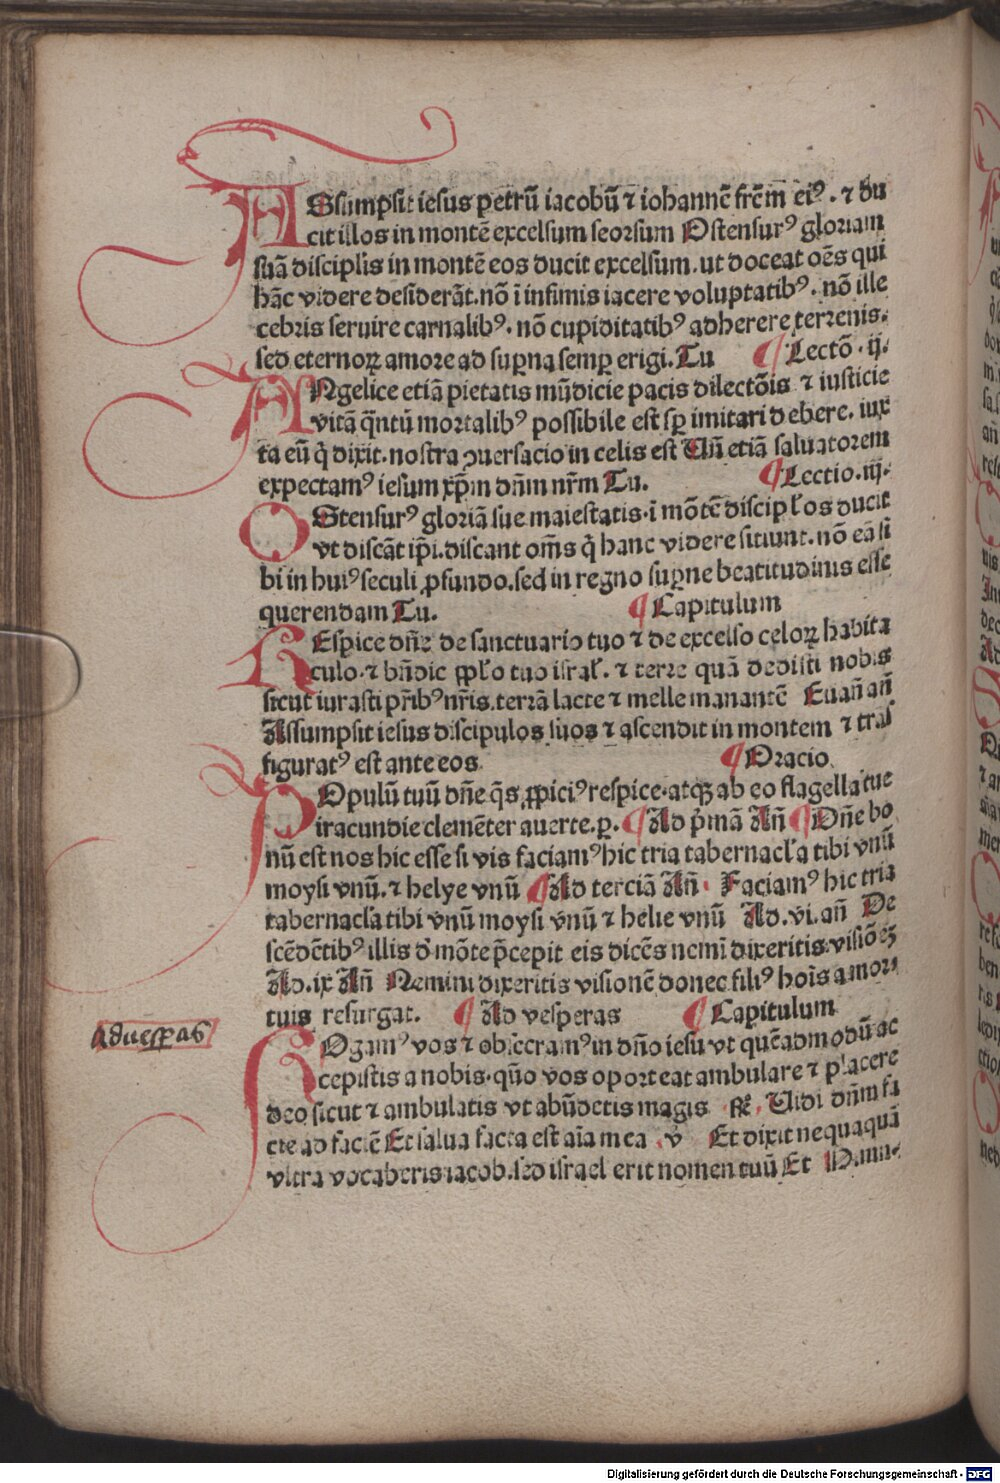 ASsumpsit iesus petrū iacobū ⁊ iohannē frēm eiꝰ . ⁊ du
cit illos in montē excelsum seorsum Ostensurꝰ gloriam
suā disciplis in montē eos ducit excelsum. ut doceat oēs qui
hāc videre desiderāt. nō ī infimis iacere voluptatibꝰ. nō ille
cebris seruire carnalibꝰ. nō cupiditatibꝰ adherere terrenis.
sed eternoꝝ amore ad suꝑna semꝑ erigi. Tu ¶ Lectō . ij.
ANgelice etiā pietatis mūdicie pacis dilectōis ⁊ iusticie
vitā q̄ntū mortalibꝰ possibile est sꝑ imitari debere. iux
ta eū q̇ dixit. nostra ↄuersacio in celis est Uñ etiā saluatorem
expectamꝰ iesum xp̄m dn̄m nr̄m Tu. ¶ Lectio. iij.
OStensurꝰ gloriā sue maiestatis. ī mōtē discipl̓os ducit
vt discāt ip̄i. discant om̄s q̇ hanc videre sitiunt. nō eā si
bi in huiꝰ seculi ꝓfundo. sed in regno suꝑne beatitudinis esse
querendam Tu. ¶ Capitulum
REspice dn̄e de sanctuario tuo ⁊ de excelso celoꝝ habita
culo. ⁊ bn̄dic ppl̓o tuo isral̓. ⁊ terre quā dedisti nobis
sicut iurasti pr̄ibꝰ nr̄is. terrā lacte ⁊ melle manantē Euañ añ
Assumpsit iesus discipulos suos ⁊ ascendit in montem ⁊ trās
figuratꝰ est ante eos ¶ Oracio
POpulū tuū dn̄e q̄s ꝓpiciꝰ respice. atqꝫ ab eo flagella tue
iracundie clemēter auerte. p. ¶ Ad p̄mā Añ ¶ Dn̄e bo
nū est nos hic esse si vis faciamꝰ hic tria tabernacl̓a tibi vnū
moysi vnū. ⁊ helye vnū ¶ Ad terciā Añ . Faciamꝰ hic tria
tabernacl̓a tibi vnū moysi vnū ⁊ helie vnū Ad. vi. añ De
scēdētibꝰ illis d̓ mōte p̄cepit eis dicēs nemī dixeritis visiōēꝫ
Ad. ix Añ Nemini dixeritis visionē donec filiꝰ hoīs a mor
tuis resurgat. ¶ Ad vesperas ¶ Capitulum
Aduesꝑas
ROgamꝰ vos ⁊ obsecramꝰ in dn̄o iesu vt quēadmodū ac
cepistis a nobis. quō vos oporteat ambulare ⁊ placere
deo sicut ⁊ ambulatis vt abūdetis magis ℟. Uidi dn̄m fa
cie ad faciē Et salua facta est aīa mea . ℣ Et dixit nequaquā
vltra vocaberis iacob. sed israel erit nomen tuū Et
Digitalisierung gefördert durch die Deutsche Forschungsgemeinschaft - DFG